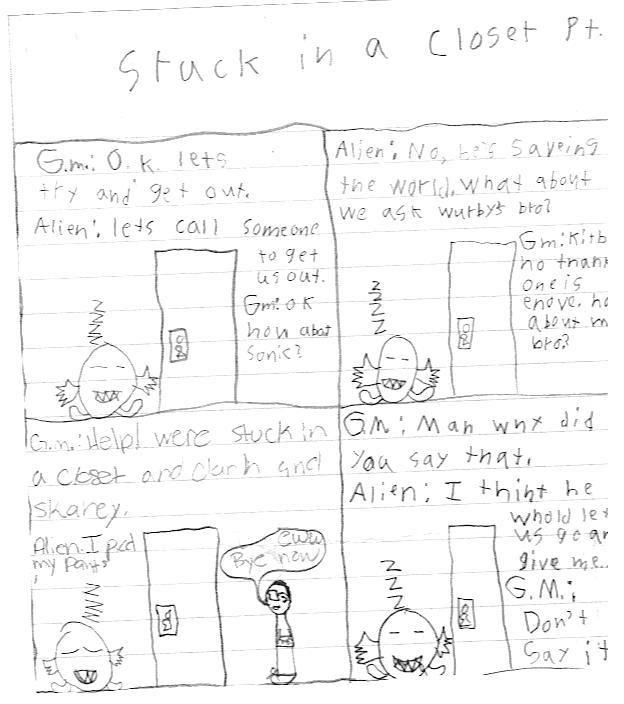 Stuck in a Closet Pt.
G.m.: O.k. lets
try and get out.
Alien: lets call someone
to get
us out.
Gm: ok
how abot
Sonic?
Alien: No, he's saveing
the world. What about
we ask wurbys bro?
Gm: Kitb
no thank
one is
enove. ho
about m
bro?
G.m.: Help! were stuck in
a closet and darh and
skarey.
Alien: I ped
my pants
eww
Bye now
G.M.: Man why did
you say that.
Alien: I thinh he
whold let
us go an
give me..
G.M.:
Don't
Say it
Z
Z
Z
Z
Z
Z
Z